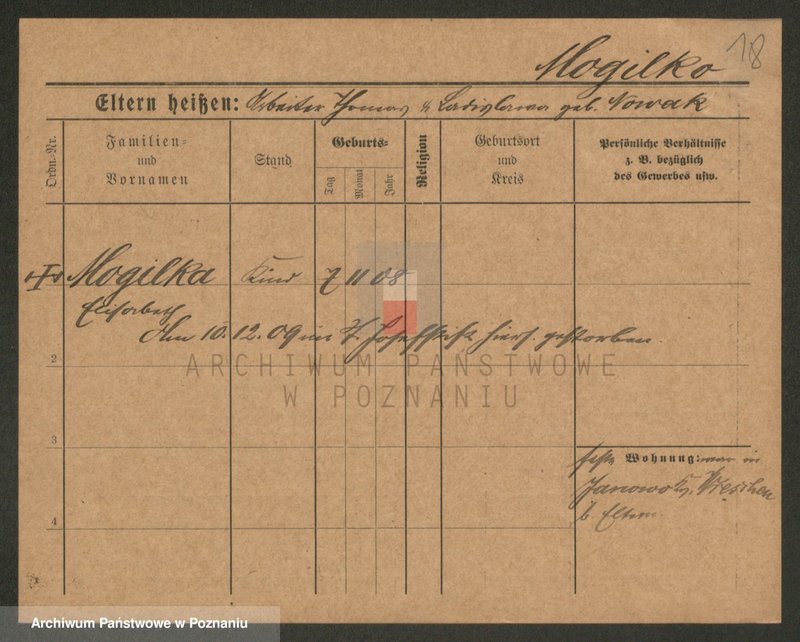 18
Mogilko
Eltern heißen: Arbeiter Thomas u Ladislawa geb. Nowak
Ordn.-Nr.
Familien- und Vornamen
Stand
Geburts-
Tag
Monat
Jahr
Religion
Geburtsort und Kreis
Persönliche Verhältnisse z. B. bezüglich des Gewerbes usw.
Mogilka Kind 7 11 08
Elisabeth
Am 10. 12. 09 im St. Josefstift hiers. gestorben.
2
ARCHIWUM PAŃSTWOWE
W POZNANIU
3
Wohnung: war in
Janowo Kr. Wreschen
b. Eltern.
4
Archiwum Państwowe w Poznaniu